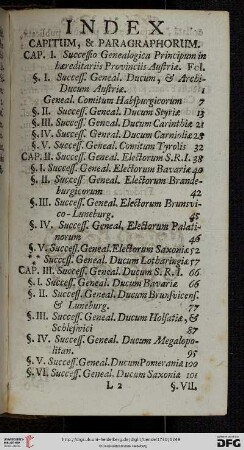 INDEX
CAPITUM, & PARAGRAPHORUM.
CAP. I. Successio Genealogica Principum in
hæreditariis Provinciis Austriæ. Fol.
§. I. Success. Geneal. Ducum, & Archi-
Ducum Austriæ. 1
Geneal. Comitum Habspurgicorum 7
§. II. Success. Geneal. Ducum Styriæ 13
§. III. Success. Geneal. Ducum Carinthiæ 21
§. IV. Success. Geneal. Ducum Carnioliæ 28
§. V. Success. Geneal. Comitum Tyrolis 32
CAP. II. Success. Geneal. Electorum S.R.I. 38
§. I. Success. Geneal. Electorum Bavariæ 40
§. II. Success. Geneal. Electorum Brande-
burgicorum 42
§. III. Success. Geneal. Electorum Brunsvi-
co-Luneburg. 45
§. IV. Success. Geneal. Electorum Palati-
norum 46
§. V. Success. Geneal. Electorum Saxoniæ 52
Success. Geneal. Ducum Lotharingiæ 57
CAP. III. Success. Geneal. Ducum S. R. I. 66
§. I. Success. Geneal. Ducum Bavariæ 66
§. II. Success. Geneal. Ducum Brunsvicens.
& Luneburg. 77
§. III. Success. Geneal. Ducum Holsatiæ, &
Schlesvici 87
§. IV. Success. Geneal. Ducum Megalopo-
litan. 95
§. V. Success. Geneal. Ducum Pomeraniæ 100
§. VI. Success. Geneal. Ducum Saxoniæ 101
L 2 §. VII.